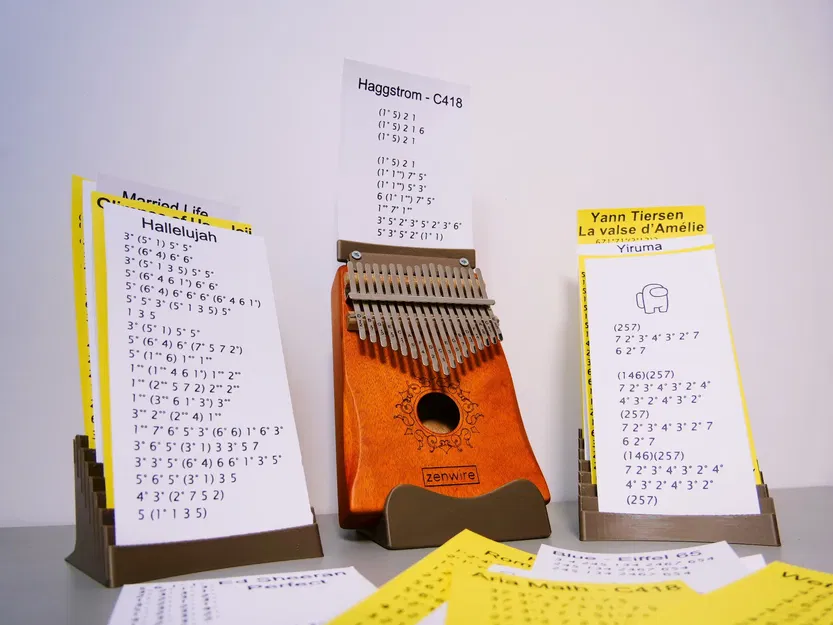 Haggstrom - C418
(1° 5) 2 1
(1° 5) 2 1 6
(1° 5) 2 1
(1° 5) 2 1
(1° 1°°) 7° 5°
(1° 1°°) 5° 3°
6 (1° 1°°) 7° 5°
1°° 7° 1°°
3° 5° 2° 3° 5° 2° 3° 6°
5° 3° 5° 2° (1° 1)
Married Life
Hallelujah
3° (5° 1) 5° 5°
5° (6° 4) 6° 6°
3° (5° 1 3 5) 5° 5°
5° (6° 4 6 1°) 6° 6°
5° (6° 4) 6° 6° 6° (6° 4 6 1°)
5° 5° 3° (5° 1 3 5) 5°
1 3 5
3° (5° 1) 5° 5°
5° (6° 4) 6° (7° 5 7 2°)
5° (1°° 6) 1°° 1°°
1°° (1°° 4 6 1°) 1°° 2°°
1°° (2°° 5 7 2) 2°° 2°°
1°° (3°° 6 1 3°) 3°°
3°° 2°° (2°° 4) 1°°
1°° 7° 6° 5° 3° (6° 6) 1° 6° 3°
3° 6° 5° (3° 1) 3 3° 5 7
3° 3° 5° (6° 4) 6 6° 1° 3° 5°
5° 6° 5° (3° 1) 3 5
4° 3° (2° 7 5 2)
5 (1° 1 3 5)
zenwire
Yann Tiersen
La valse d'Amélie
Yiruma
(257)
7 2° 3° 4° 3° 2° 7
6 2° 7
(146)(257)
7 2° 3° 4° 3° 2° 4°
4° 3° 2° 4° 3° 2°
(257)
7 2° 3° 4° 3° 2° 7
6 2° 7
(146)(257)
7 2° 3° 4° 3° 2° 4°
4° 3° 2° 4° 3° 2°
(257)
Ed Sheeran
Perfect
Blue - Eiffel 65
Aria Math - C418